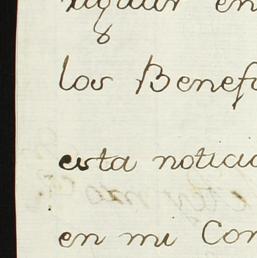 en
los Benef
esta noticia
en mi Con